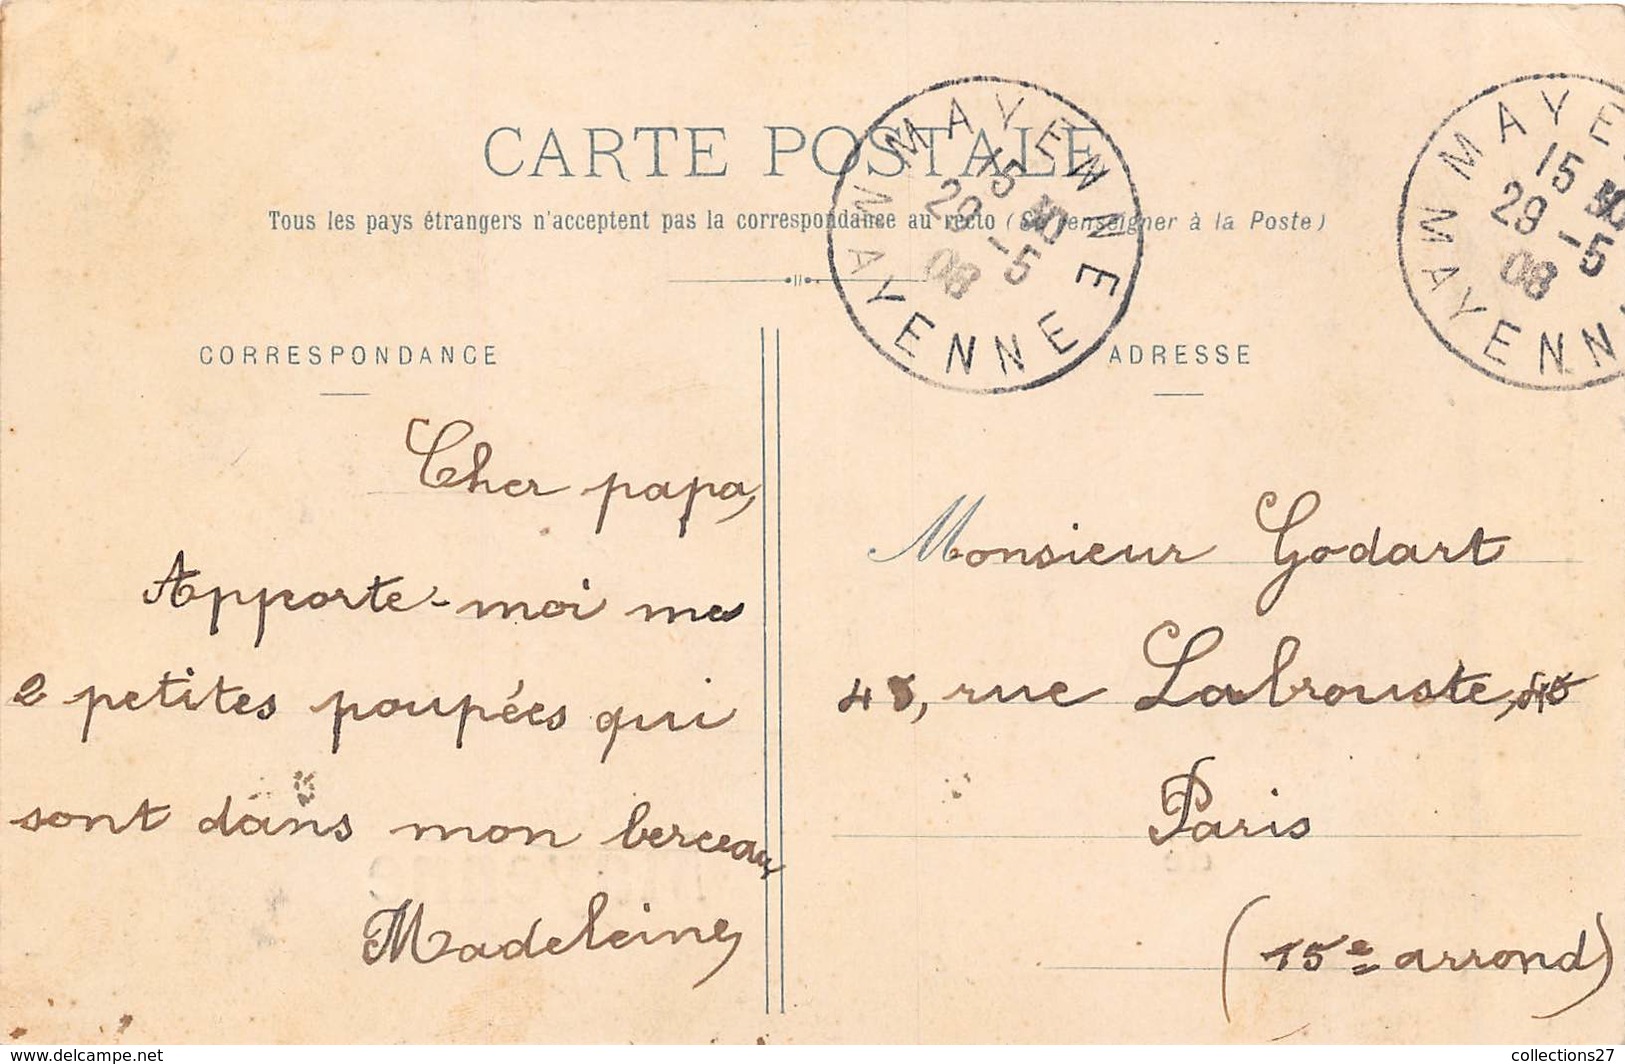 CARTE POSTALE
Tous les pays étrangers n'acceptent pas la correspondance au recto (Se renseigner à la Poste)
MAYENNE
15 30
29 -5
08
MAYENNE
MAYE
15 30
29 -5
08
MAYENN
CORRESPONDANCE
Cher papa,
Apporte-moi mes
2 petites poupées qui
sont dans mon berceau,
Madeleine,
ADRESSE
Monsieur Godart
45, rue Labrouste, 45
Paris
(15e arrond)
www.delcampe.net
collections27